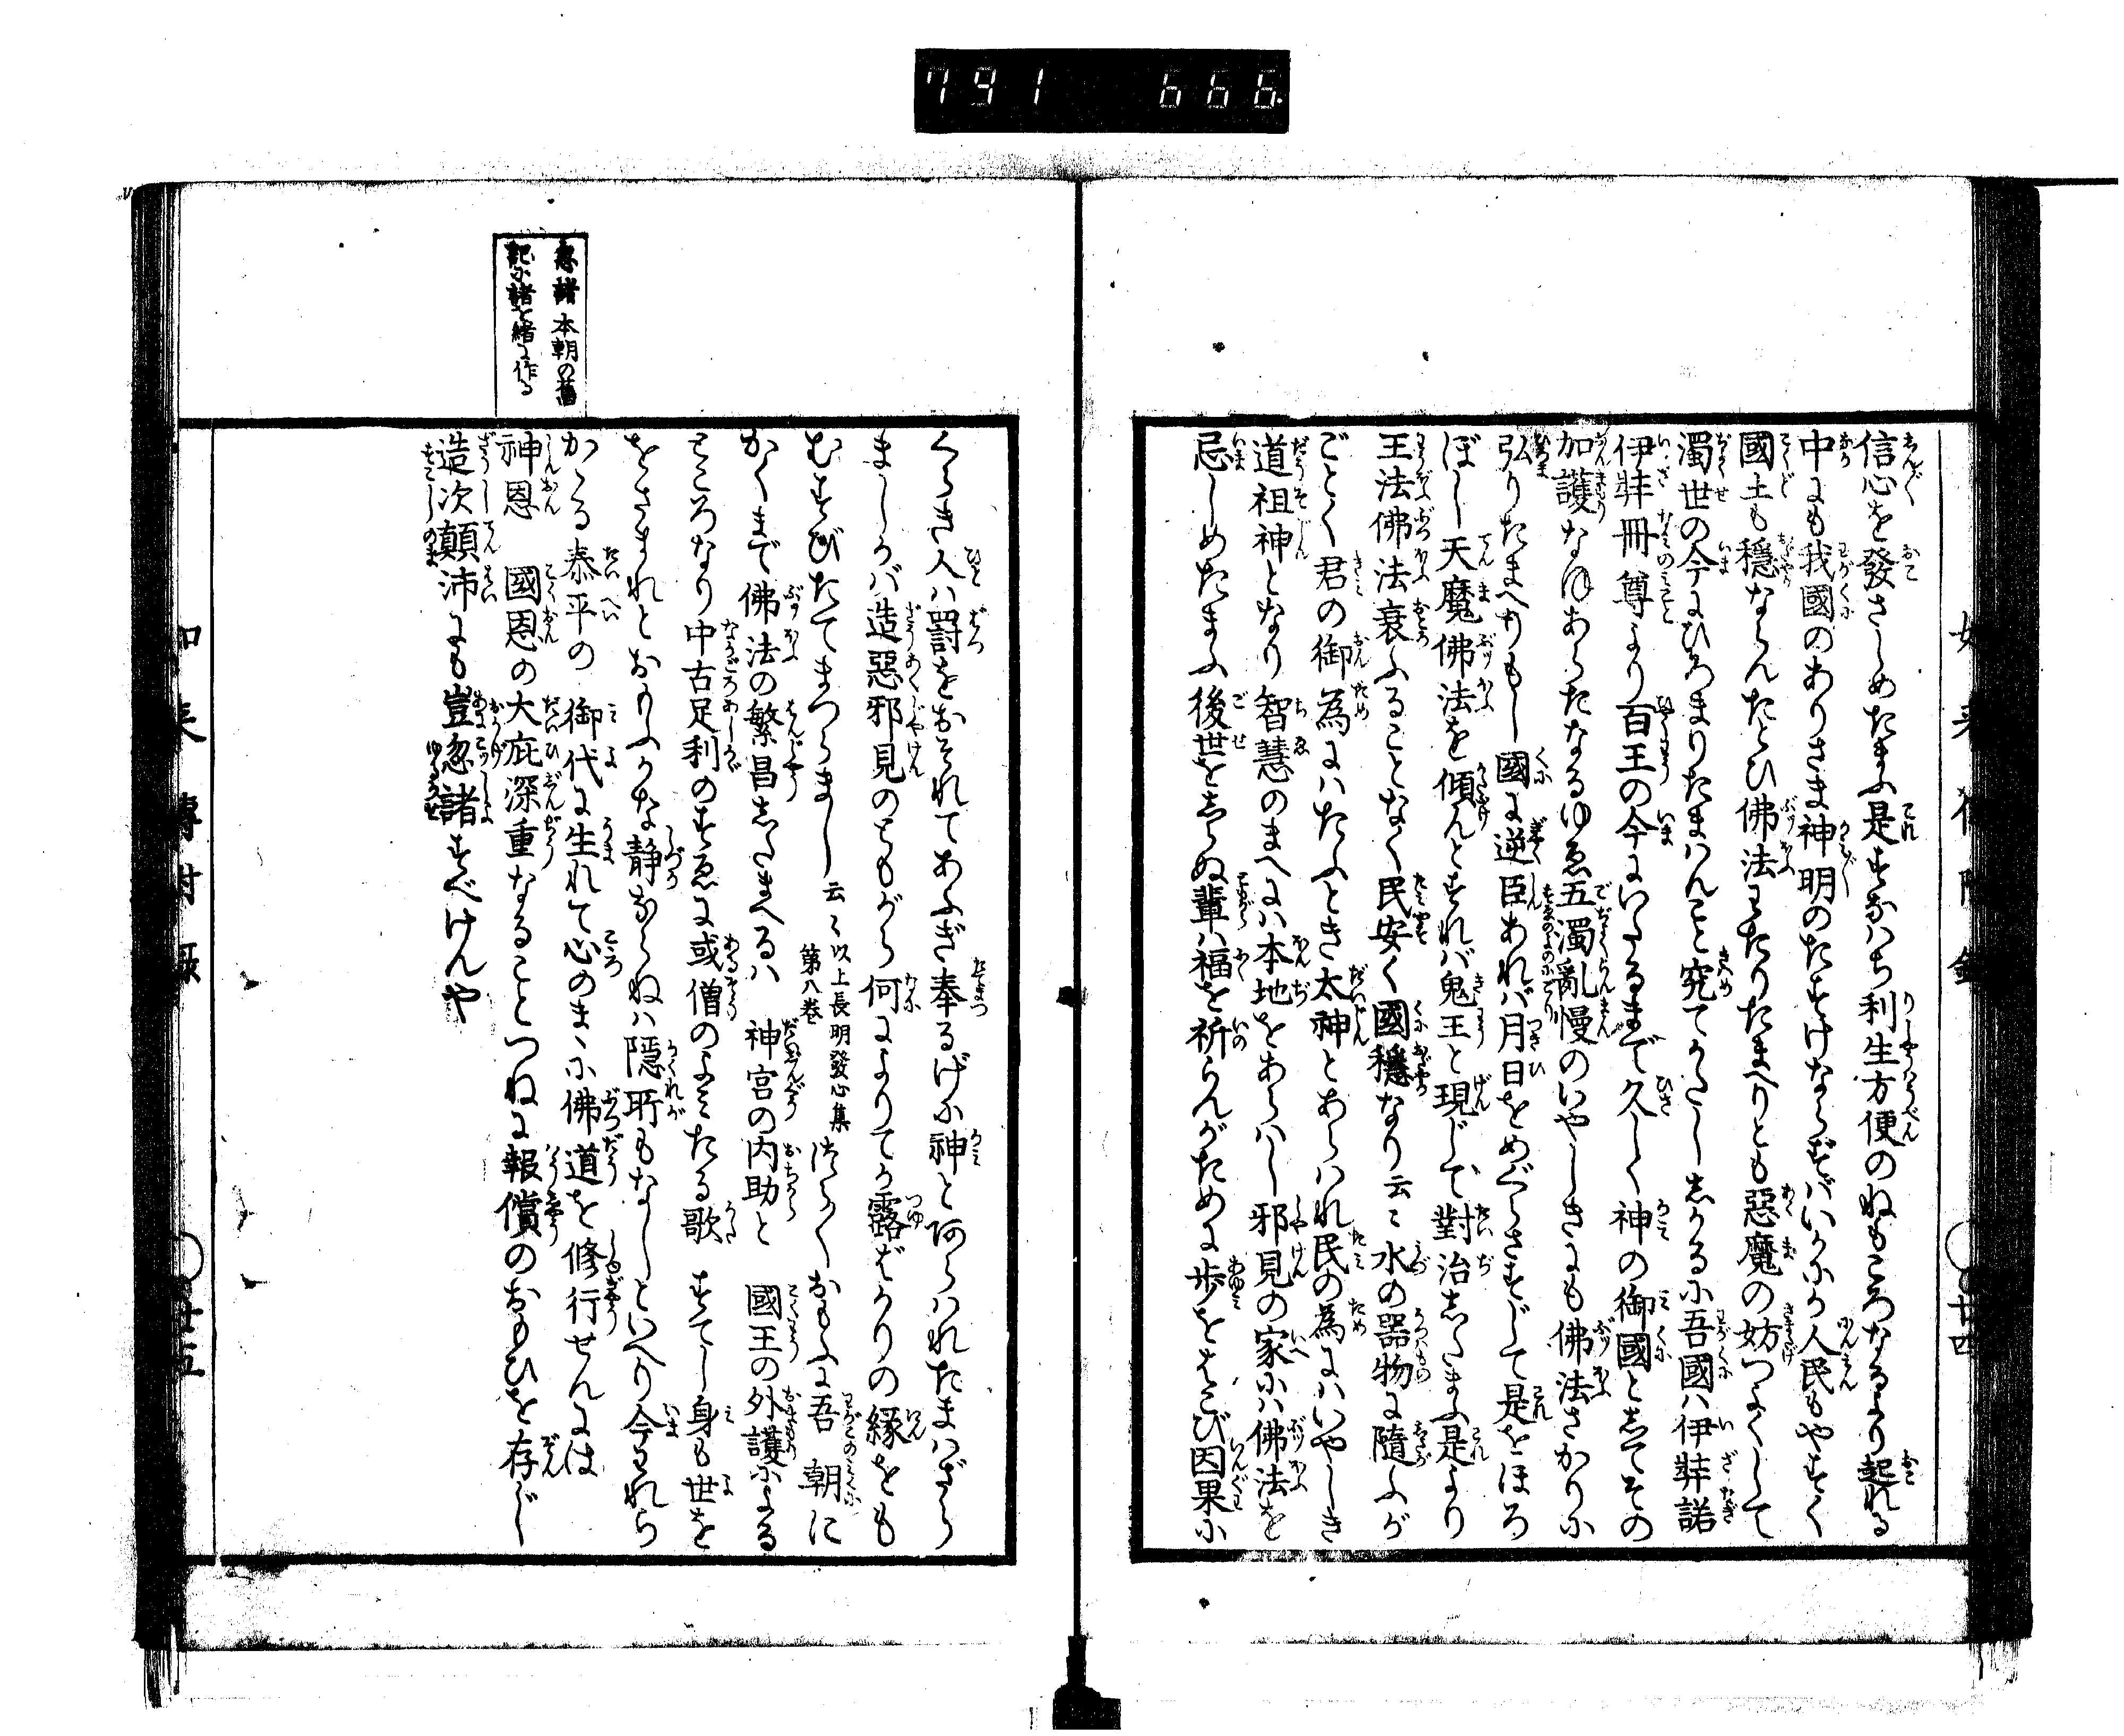 791 666
信心を發さしめたまふ是すなはち利生方便のねもころなるより起れる
中にも我國のありさま神明のたすけならずバいかにか人民もやすく
國土も穩ならんたとひ佛法わたりたまへりとも惡魔の妨つよくして
濁世の今にひろまりたまハんこと究てかたししかるに吾國ハ伊弉諾
伊弉冊尊より百王の今にいたるまで久しく神の御國としてその
加護なほあらたなるゆゑ五濁亂慢のいやしきにも佛法さかりに
弘りたまへりもし國に逆臣あれバ月日をめぐらさずして是をほろ
ぼし天魔佛法を傾んとすれバ鬼王と現じて對治したまふ是より
王法佛法衰ふることなく民安く國穩なり云々水の器物に隨ふが
ごとく君の御為にハたふとき太神とあらハれ民の為にハいやしき
道祖神となり智慧のまへにハ本地をあらハし邪見の家にハ佛法を
忌しめたまふ後世をしらぬ輩ハ福を祈らんがために歩をはこび因果に
廿四
忽諸 本朝の舊
記に諸を緒に作る
くらき人ハ罰をおそれてあふぎ奉るげに神と阿らハれたまハざら
ましかバ造惡邪見のともがら何によりてか露ばかりの縁をも
むすびたてまつらまし云々 以上長明發心集第八巻 つら〱おもふに吾 朝に
かくまで佛法の繁昌したまへるハ 神宮の内助と 國王の外護による
ところなり中古足利のすゑに或僧のよみたる歌 すてし身も世を
をさまれとおもふかな靜ならねハ隱所もなしといへり今われら
かゝる泰平の 御代に生れて心のまゝに佛道を修行せんには
神恩 國恩の大庇深重なることつねに報償のおもひを存じ
造次顛沛にも豈忽諸すべけんや
廿五